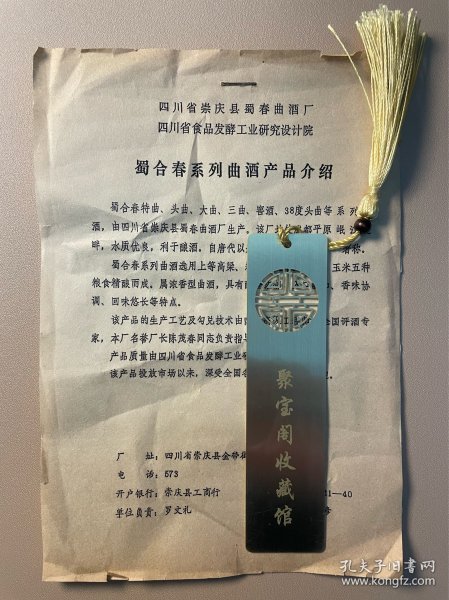 四川省崇庆县蜀春曲酒厂
四川省食品发酵工业研究设计院
蜀合春系列曲酒产品介绍
蜀合春特曲、头曲、大曲、三曲、窖酒、38度头曲等系列
酒，由四川省崇庆县蜀春曲酒厂生产。该厂 平原岷
畔，水质优良，利于酿酒。自唐代以 称。
蜀合春系列曲酒选用上等高粱、 玉米五种
粮食精酿而成。属浓香型曲酒，具有 香味协
调、回味悠长等特点。
该产品的生产工艺及勾兑技术由 全国评酒专
家，本厂名誉厂长陈茂春同志负责指
产品质量由四川省食品发酵工业
该产品投放市场以来，深受全国
厂 址：四川省崇庆县金带街
电 话：573
开户银行：崇庆县工商行 1—40
单位负责：罗文礼
聚宝阁收藏馆
孔夫子旧书网
www.kongfz.com